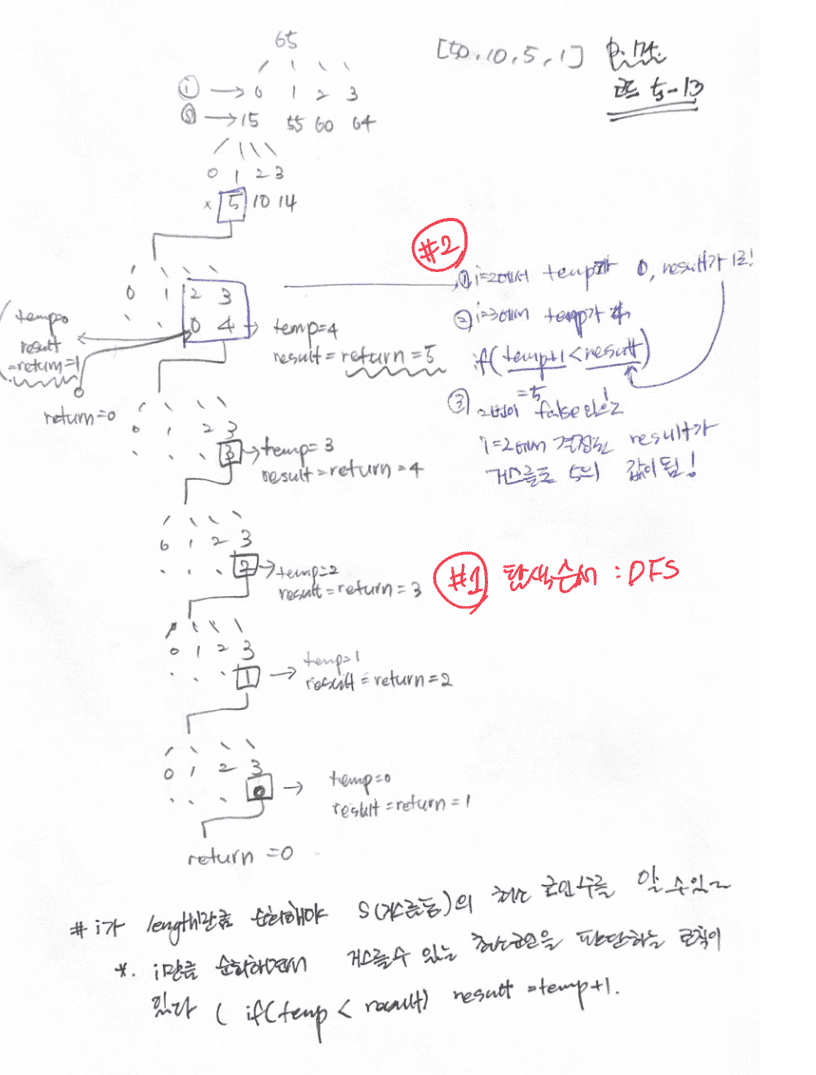 65
[50, 10, 5, 1]
코드 5-13
ⓘ → 0 1 2 3
ⓢ → 15 55 60 64
0 1 2 3
× 5 10 14
#2
0 1 2 3
. . 0 4
temp=0
result
=return=1
return=0
temp=4
result = return = 5
① i=2에서 temp가 0, result가 1로!
② i=3에서 temp가 4
if(temp+1<result)
=5 1
③ false
i=2에서 결정된 result가
거스름돈 5의 값이 됨!
0 1 2 3
. . . 3
temp=3
result = return = 4
0 1 2 3
. . . 2
temp=2
result = return = 3
#1 탐색순서 : DFS
0 1 2 3
. . . 1
temp=1
result = return = 2
0 1 2 3
. . . 0
temp=0
result = return = 1
return = 0
# i가 length만큼 순회해야 S(거스름돈)의 최소 동전수를 알 수 있다
*. i만큼 순회하면서 거스를 수 있는 최소 판단하는 로직이
있다 ( if(temp < result) result = temp+1.